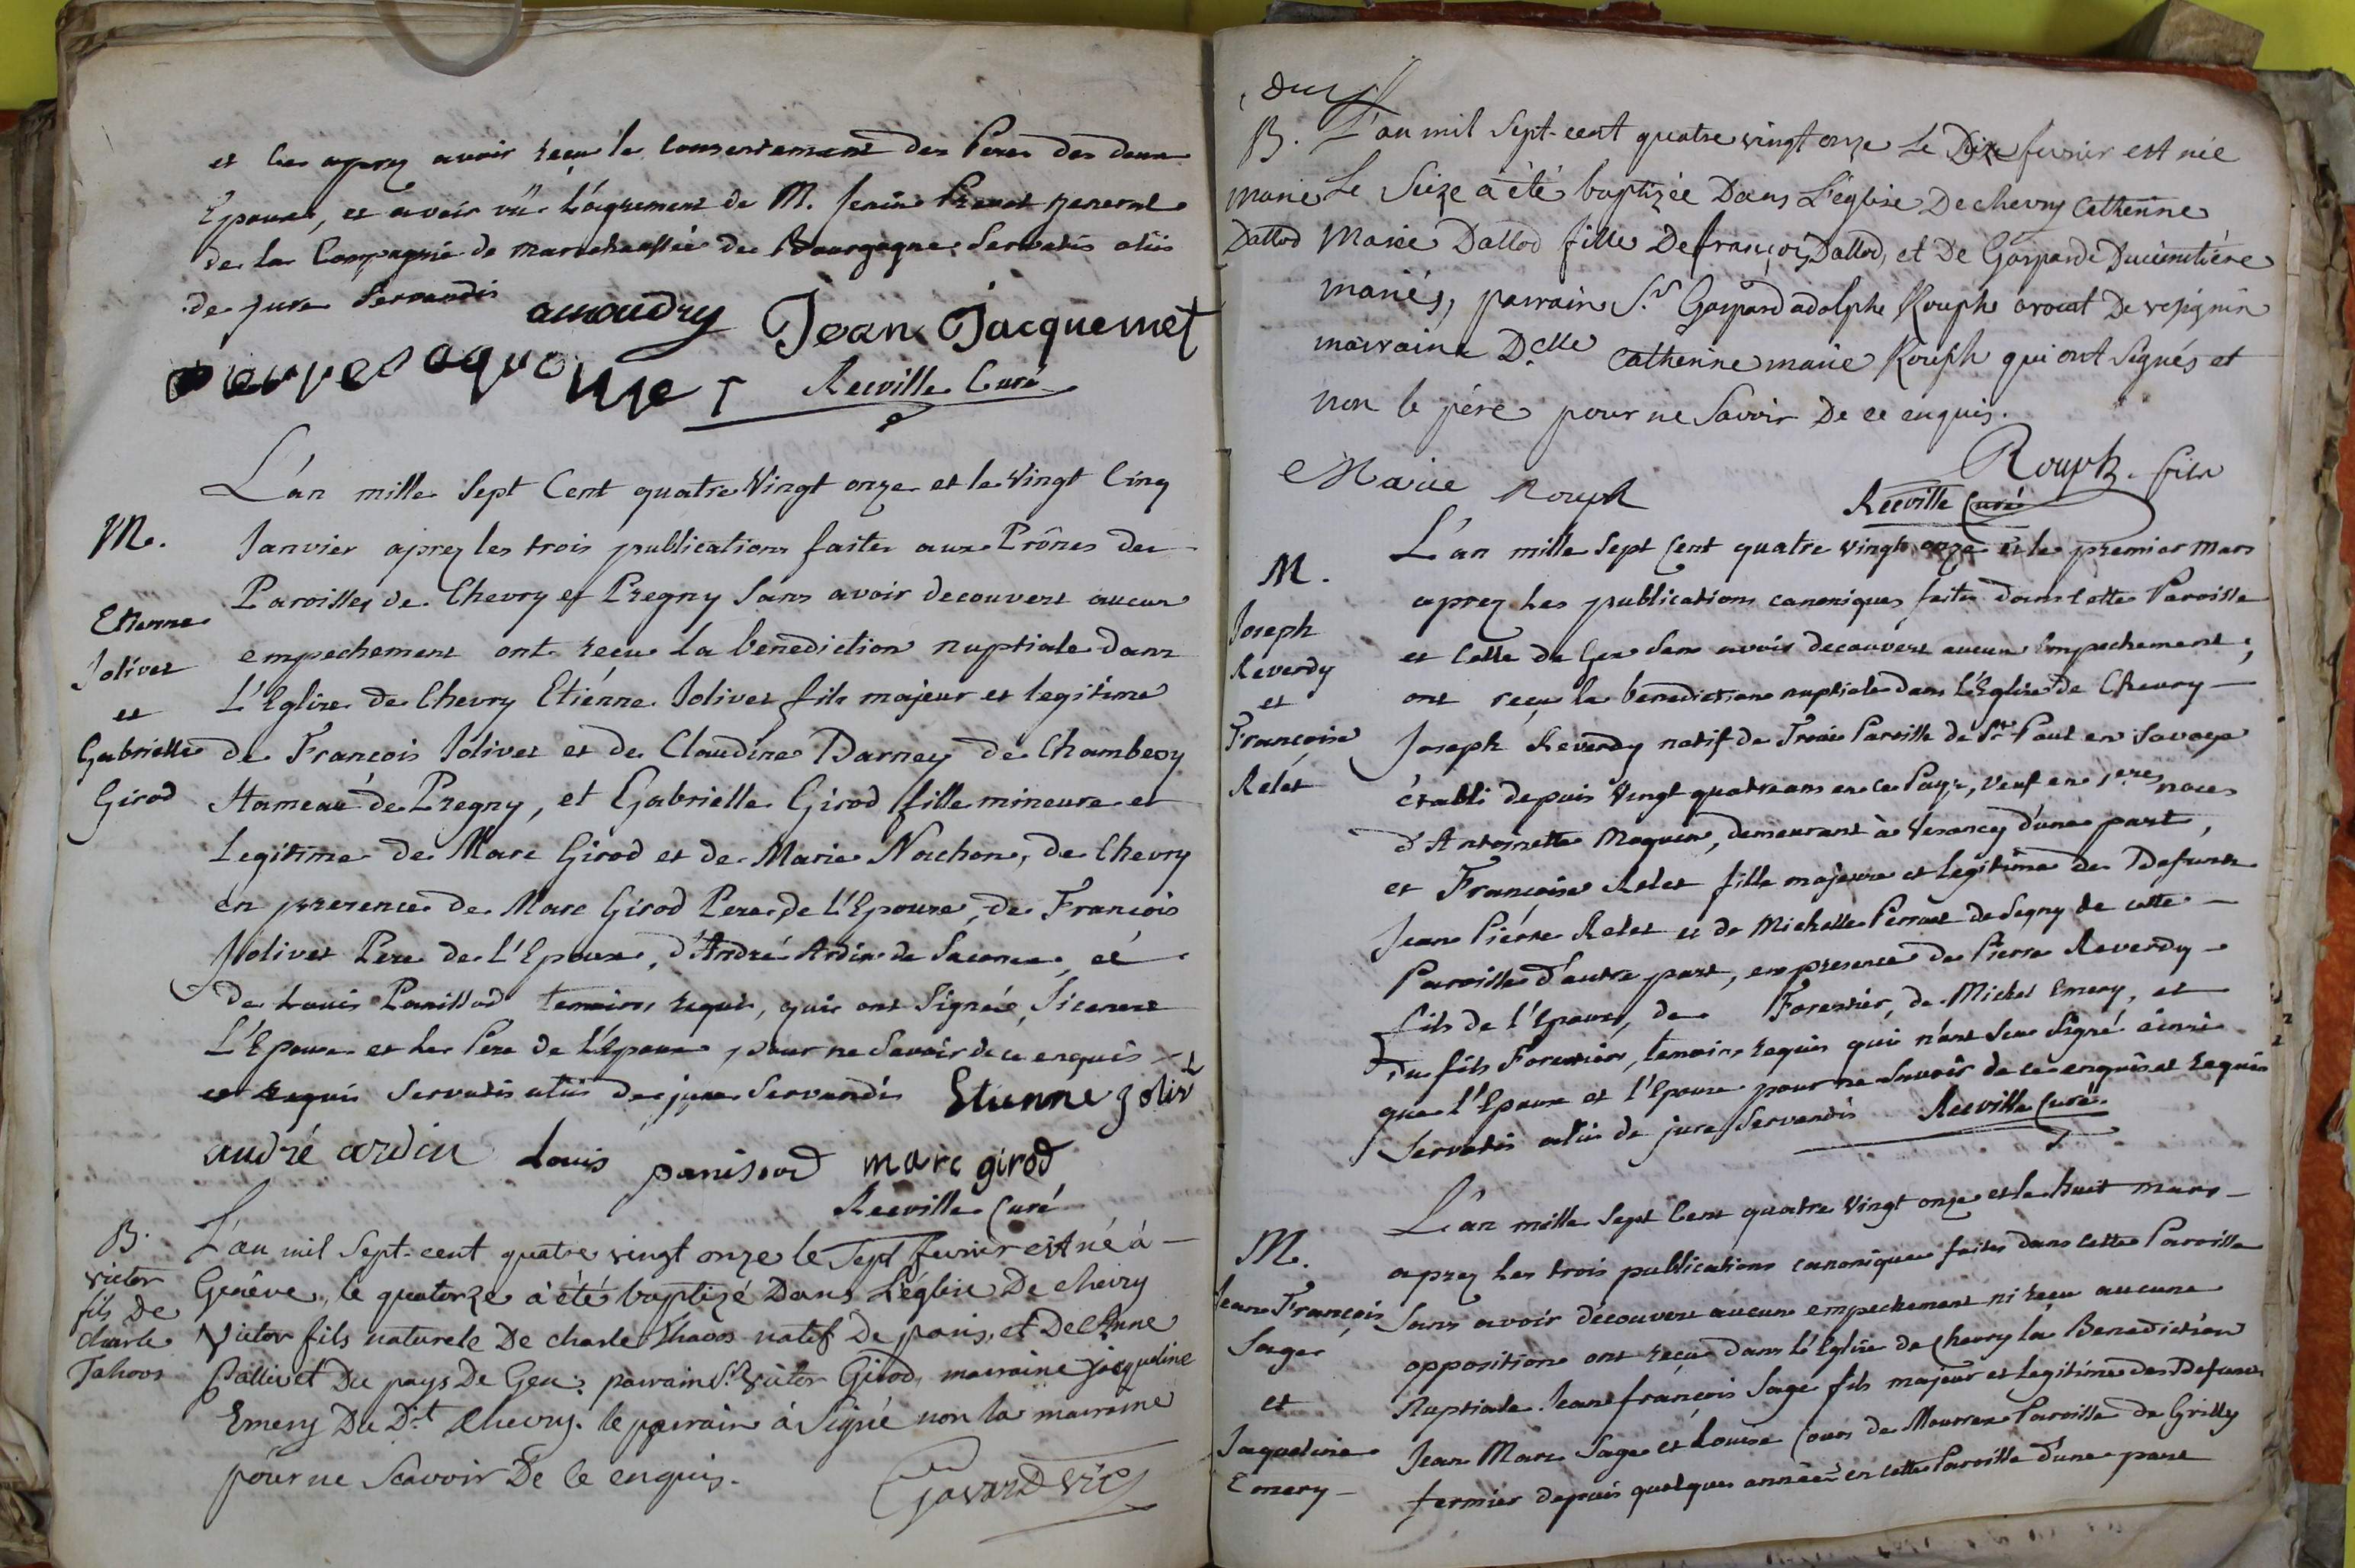 et ce aprez avoir reçu le consentement des Peres des deux
Epoux, et avoir vû l'agrement de M. Jenin Prevot general
de la Compagnie de Marechaussée de Bourgogne Servatis aliis
de jure Servandis amaudry Jean Jacquemet
Reeville Curé
L'an mille Sept Cent quatre Vingt onze et le Vingt Cinq
M. Janvier aprez les trois publications faites aux Prônes des
Paroisses de Chevry et Pregny Sans avoir decouvert aucun
Etienne
Jolivet
et
Gabrielle
Girod
empechement ont reçu la benediction nuptiale dans
L'Eglise de Chevry Etienne Jolivet fils majeur et legitime
de François Jolivet et de Claudine Barney de Chambesy
Hameau de Pregny, et Gabrielle Girod fille mineure et
Legitime de Marc Girod et de Marie Nachon, de Chevry
en presence de Marc Girod Pere de L'Epouse, de François
Jolivet Pere de L'Epoux, d'André Ardin de Saconex, et
de Louis Panissod temoins requis, qui ont Signé, Si ce n'est
L'Epouse et le Pere de L'Epoux pour ne Savoir de ce enquis
et requis Servatis aliis de jure Servandis Etienne Jolivt
andré ardin Louis panisod marc girod
Reeville Curé
B.
victor
fils De
charle
Tahoos
L'an mil Sept-cent quatre vingt onze le Sept fevrier est né à
Genêve, le quatorze à été baptizé Dans L'église De chevry
Victor fils naturele De charle Thaoos natif De paris, et De Anne
Pallivet Du pays De Gex; parrain Sr. Victor Girod, marraine jacqueline
Emery Du Dit Chevry. le parrain à Signé non la marraine
pour ne Scavoir De ce enquis.
Gavard vic
B. L'an mil Sept-cent quatre vingt onze Le Dize fevrier est née
marie
Dallod
Le Seize à été baptizée Dans L'église De chevry Catherine
Marie Dallod fille De françois Dallod, et De Gasparde Ducimitiére
mariés, parrain Sr. Gaspard adolphe Rouph avocat De
marraine Delle catherine marie Rouph qui ont Signés et
non le pére pour ne Savoir De ce enquis.
Marie Rouph Rouph fils
Reeville Curé
L'an mille Sept Cent quatre vingt onze et le premier Mars
M.
Joseph
Reverdy
et
Françoise
Relet
aprez les publications canoniques faites dans cette Paroisse
et celle de Gex Sans avoir decouvert aucun Empechement,
ont reçu la benediction nuptiale dans L'Eglise de Chevry
Joseph Reverdy natif de Paroisse de St. Paul en Savoye
établi depuis Vingt quatre ans en ce Pays, Veuf en 1eres noces
d'Antoinette Maquin, demeurant à Vesancy d'une part,
et Françoise Relet fille majeure et legitime de Defunt
Jean Pierre Relet et de Michelle Perraut de Segny de cette
Paroisse d'autre part, en presence de Pierre Reverdy
fils de l'Epoux, de Forestier, de Michel Emery, et
du fils Forestier, temoins requis qui n'ont Scu Signé ainsi
que l'Epoux et l'Epouse pour ne Savoir de ce enquis et requis
Servatis aliis de jure Servandis Reeville Curé
L'an mille Sept Cent quatre Vingt onze et le huit mars
M.
Jean François
Sage
et
Jaqueline
Emery
aprez les trois publications canoniques faites dans cette Paroisse
Sans avoir découvert aucun empechement ni reçu aucune
opposition ont reçu dans L'Eglise de Chevry la Benediction
Nuptiale Jean françois Sage fils majeur et legitime des Defunts
Jean Marc Sage et Louise Cours de Mourrex Paroisse de Grilly
fermier depuis quelques années en cette Paroisse d'une part